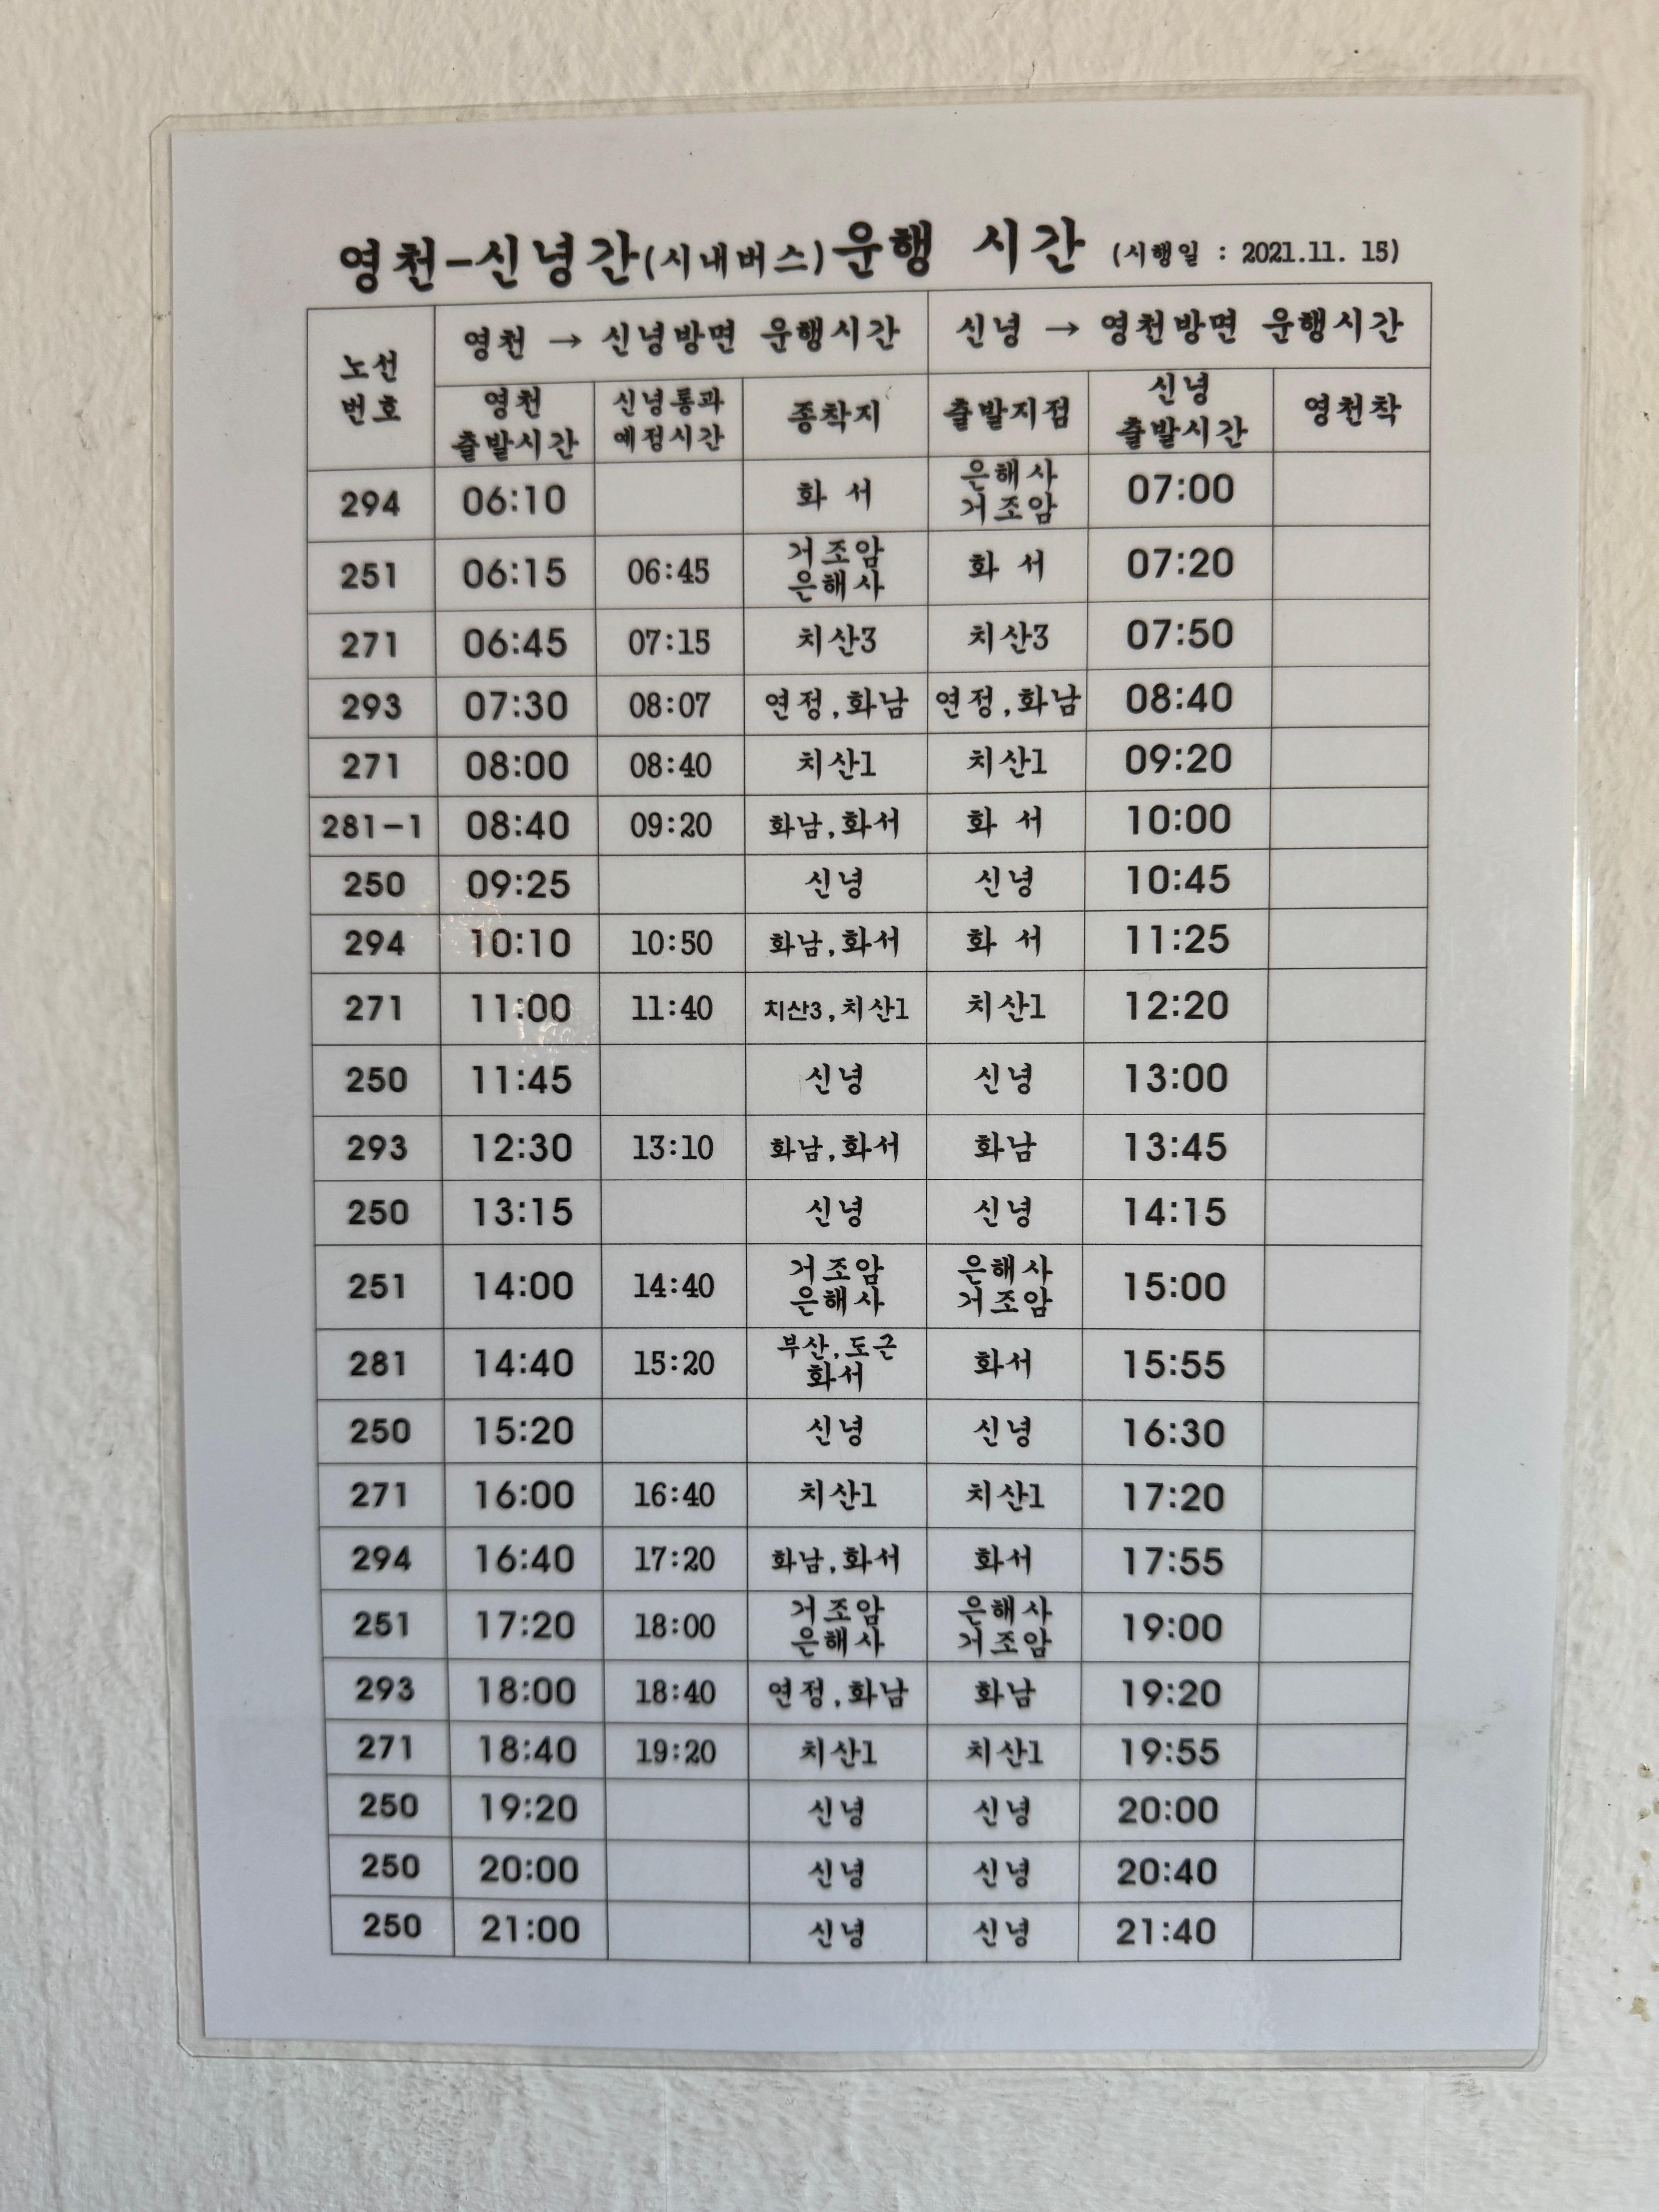 영천-신녕간(시내버스)운행 시간 (시행일 : 2021.11. 15)
노선 번호 영천 → 신녕방면 운행시간 신녕 → 영천방면 운행시간
영천 출발시간 신녕통과 예정시간 종착지 출발지점 신녕 출발시간 영천착
294 06:10 화 서 은해사 거조암 07:00
251 06:15 06:45 거조암 은해사 화 서 07:20
271 06:45 07:15 치산3 치산3 07:50
293 07:30 08:07 연정,화남 연정,화남 08:40
271 08:00 08:40 치산1 치산1 09:20
281-1 08:40 09:20 화남,화서 화 서 10:00
250 09:25 신녕 신녕 10:45
294 10:10 10:50 화남,화서 화 서 11:25
271 11:00 11:40 치산3,치산1 치산1 12:20
250 11:45 신녕 신녕 13:00
293 12:30 13:10 화남,화서 화남 13:45
250 13:15 신녕 신녕 14:15
251 14:00 14:40 거조암 은해사 은해사 거조암 15:00
281 14:40 15:20 부산,도근 화서 화서 15:55
250 15:20 신녕 신녕 16:30
271 16:00 16:40 치산1 치산1 17:20
294 16:40 17:20 화남,화서 화서 17:55
251 17:20 18:00 거조암 은해사 은해사 거조암 19:00
293 18:00 18:40 연정,화남 화남 19:20
271 18:40 19:20 치산1 치산1 19:55
250 19:20 신녕 신녕 20:00
250 20:00 신녕 신녕 20:40
250 21:00 신녕 신녕 21:40